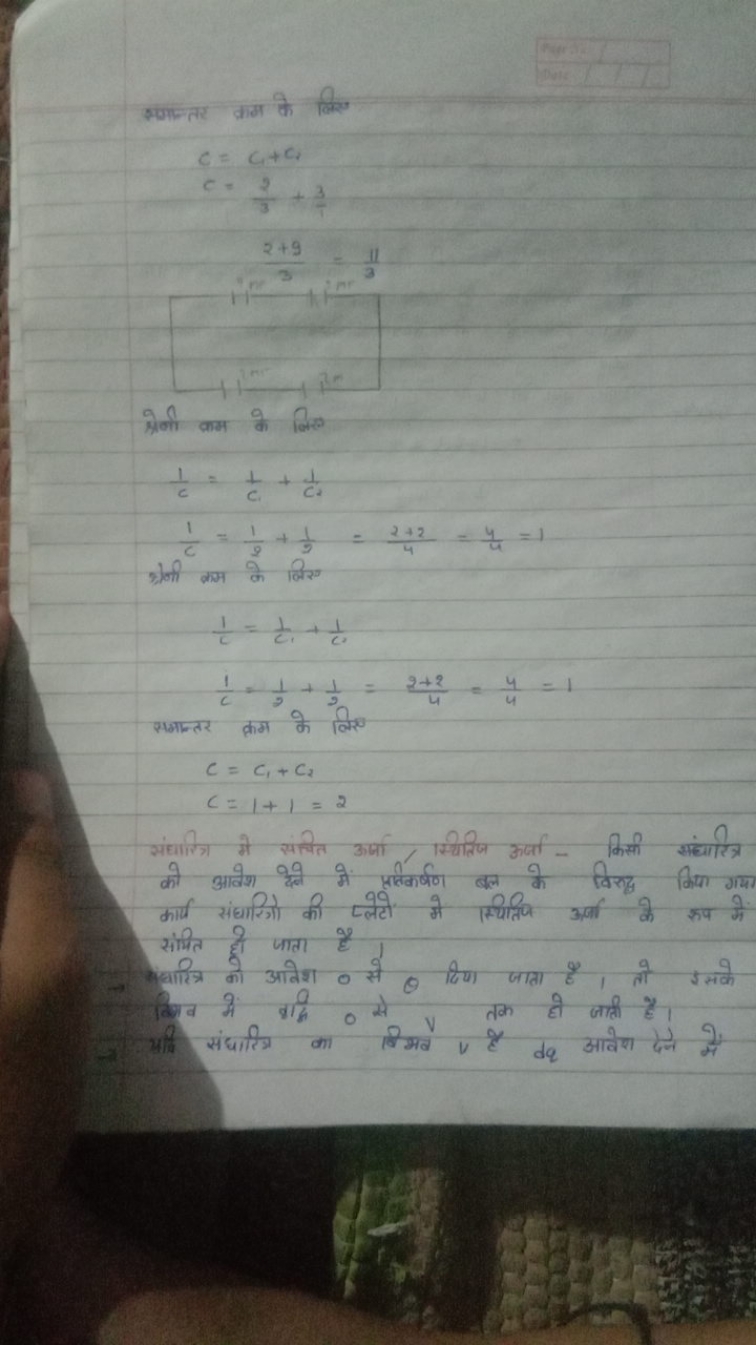 Page No.
Date / / /
समान्तर क्रम के लिए
C = C₁ + C₂
C = 2/3 + 3/1
2+9/3 = 11/3
श्रेणी क्रम के लिए
1/C = 1/C₁ + 1/C₂
1/C = 1/2 + 1/2 = 2+2/4 = 4/4 = 1
श्रेणी क्रम के लिए
1/C = 1/C₁ + 1/C₂
1/C = 1/2 + 1/2 = 2+2/4 = 4/4 = 1
समान्तर क्रम के लिए
C = C₁ + C₂
C = 1 + 1 = 2
संधारित्र मे संचित ऊर्जा / स्थितिज ऊर्जा – किसी संधारित्र
को आवेश देने में प्रतिकर्षण बल के विरुद्ध किया गया
कार्य संधारित्रो की प्लेटों मे स्थितिज ऊर्जा के रूप में
संचित हो जाता है ।
→ संधारित्र को आवेश 0 से Q दिया जाता है , तो इसके
विभव में वृद्धि 0 से V तक हो जाती है ।
→ यदि संधारित्र का विभव V है dq आवेश देने में